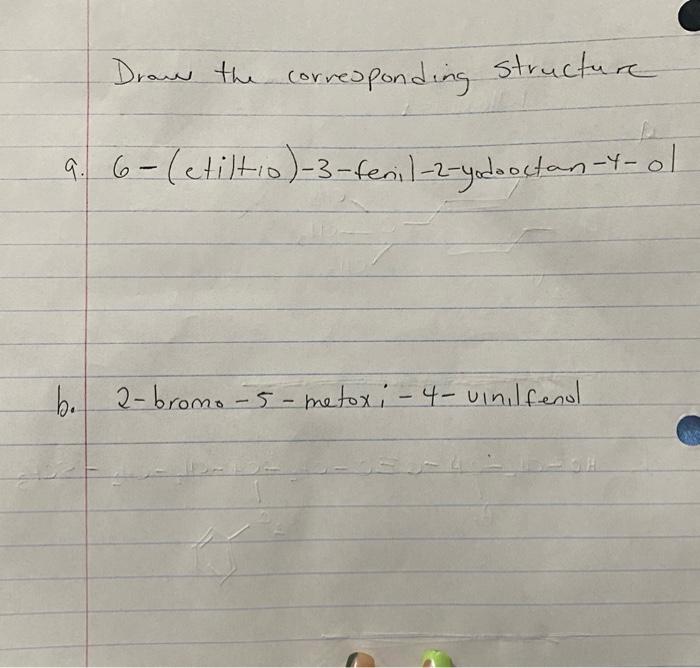 Draw the corresponding structure
a. 6-(etiltio)-3-fenil-2-yodooctan-4-ol
b. 2-bromo-5-metoxi-4-vinilfenol